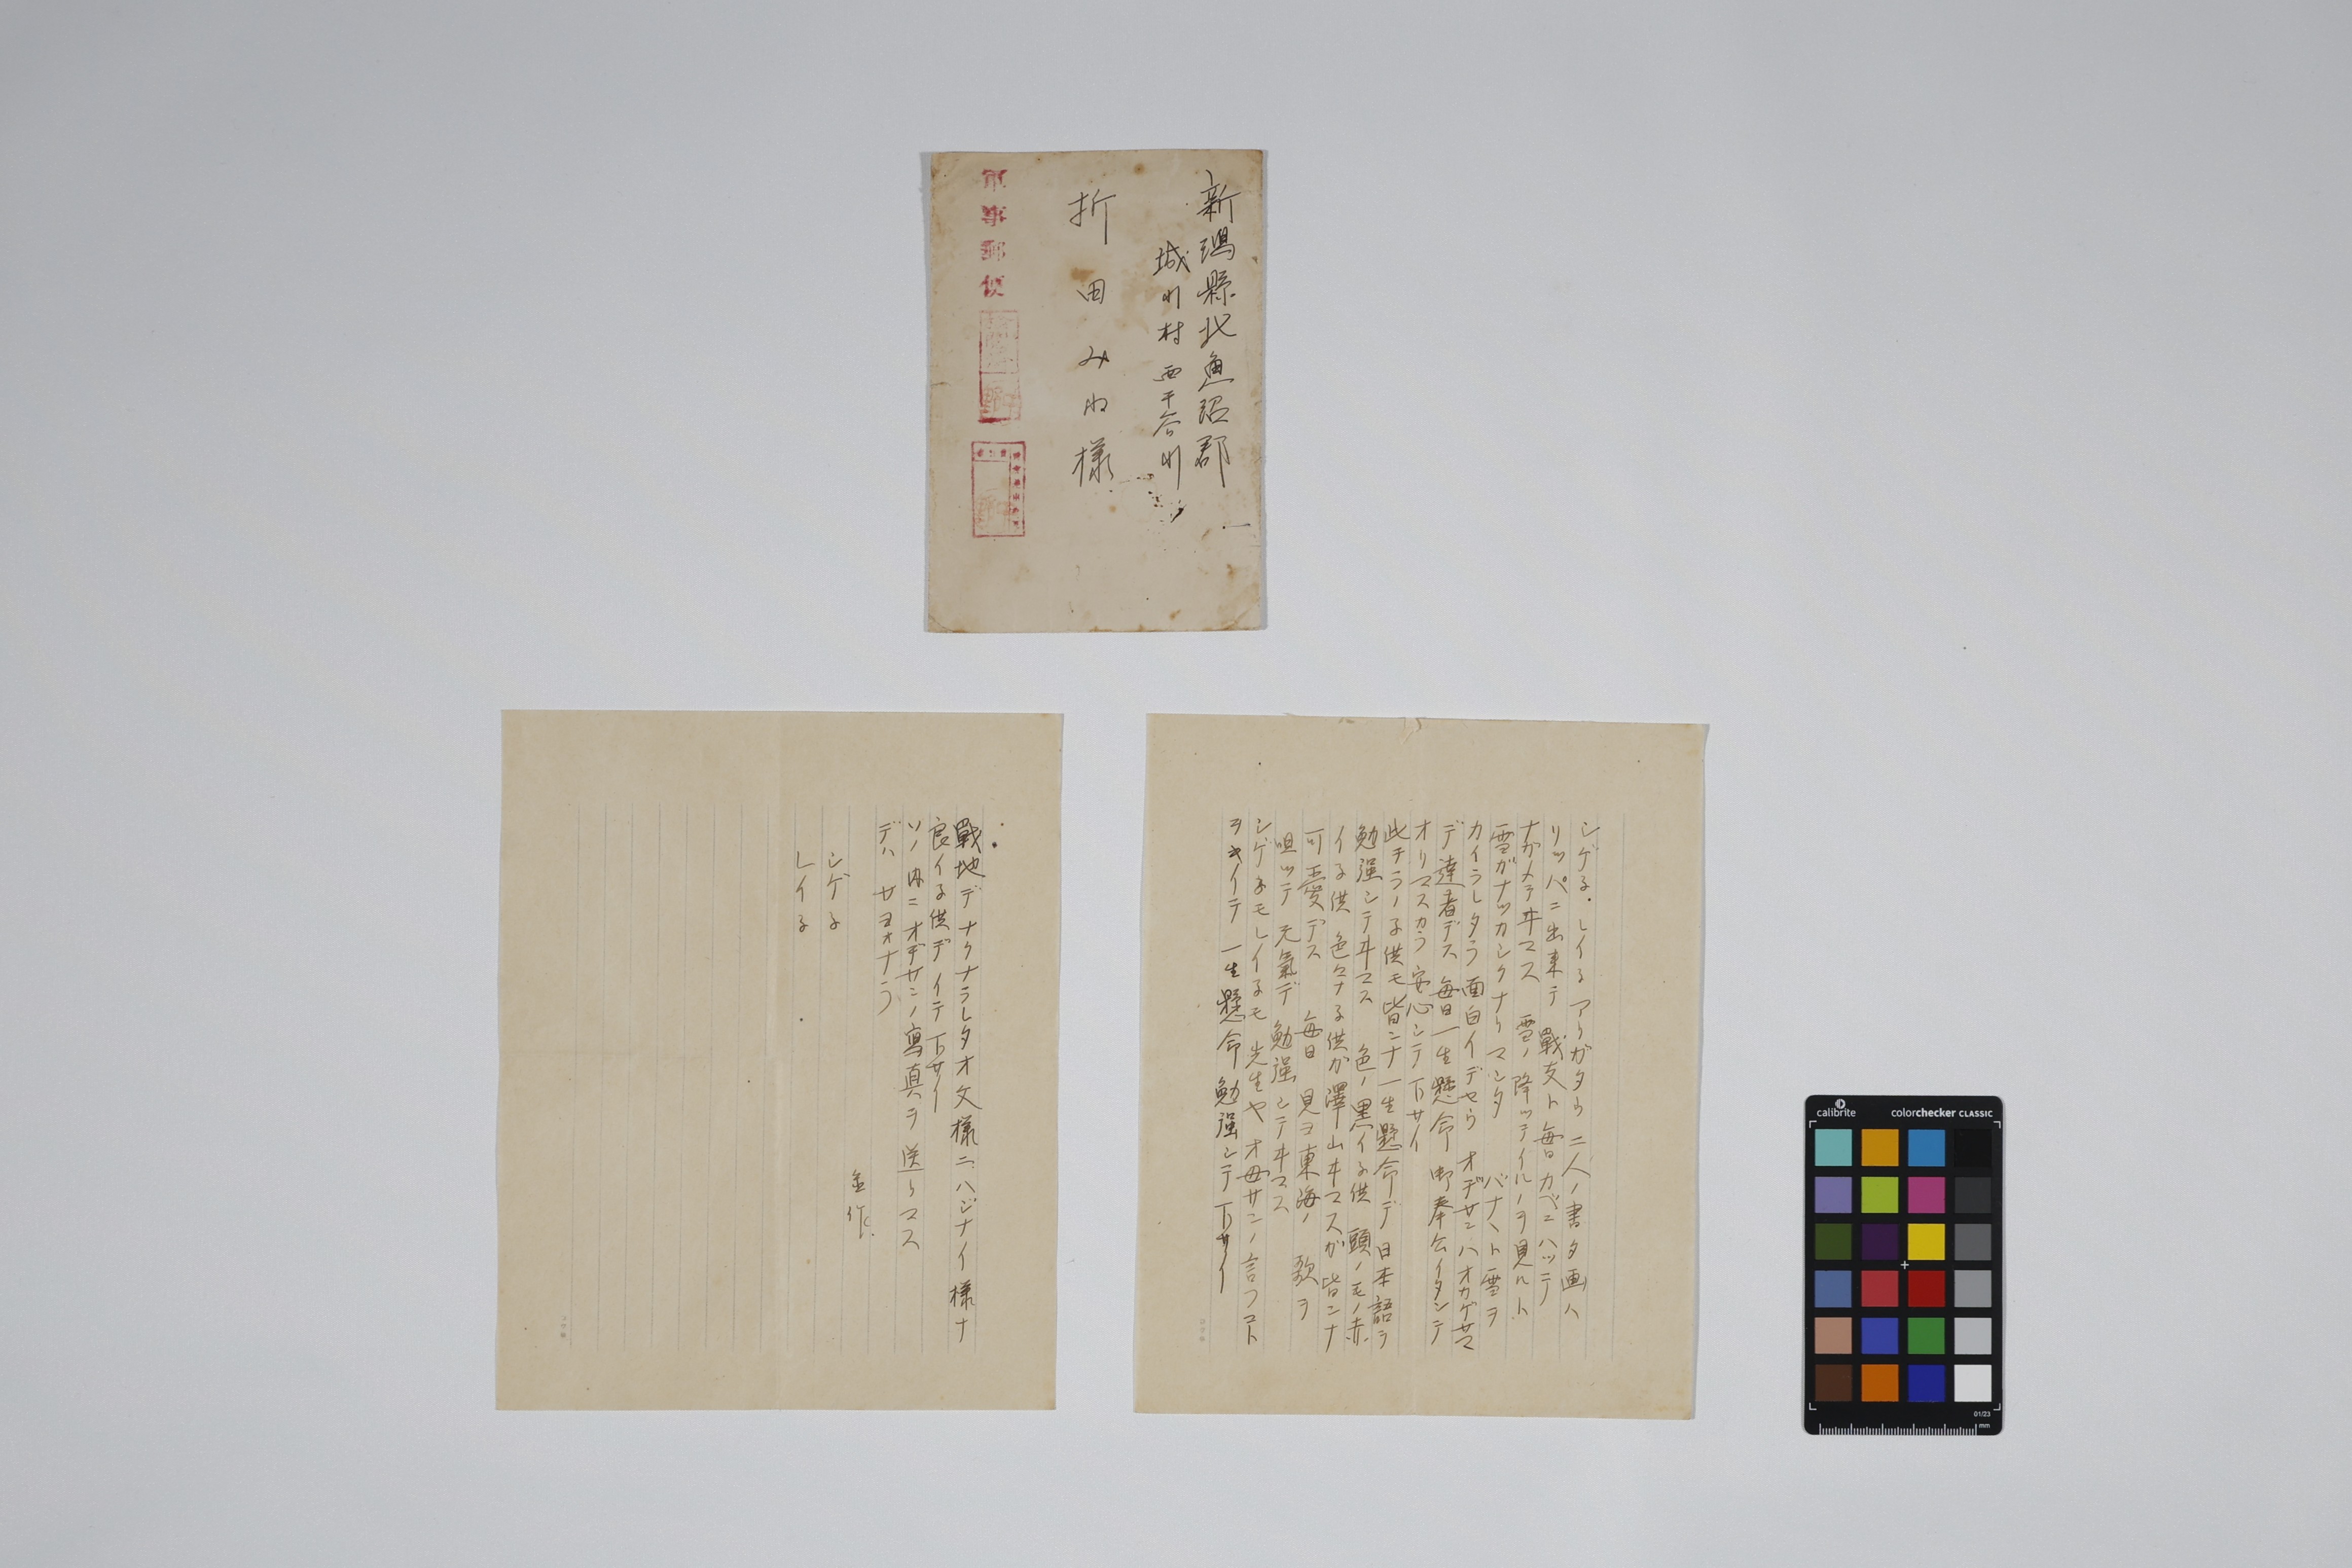 新潟縣北魚沼郡
城川村西千谷川
折田みね様
軍事郵便
シゲ子・レイ子アリガタウ二人ノ書タ画ハ
リッパニ出来テ 戰友ト毎日カベニハッテ
ナガメテヰマス 雪ノ降ッテイルノヲ見ルト
雪ガナツカシクナリマシタ バナナト雪ヲ
カイラレタラ面白イデセウ オヂサンハオカゲサマ
デ達者デス 毎日一生懸命御奉公イタシテ
オリマスカラ安心シテ下サイ
此チラノ子供モ皆ンナ一生懸命デ日本語ヲ
勉强シテヰマス 色ノ黒イ子供 頭ノモノ赤
イ子供 色々ナ子供ガ澤山ヰマスガ皆ンナ
可愛デス 毎日 見ヨ東海ノ 歌ヲ
唄ッテ 元氣デ 勉强シテヰマス
シゲ子モレイ子モ先生ヤオ母サンノ言フコト
ヲキイテ 一生懸命勉强シテ下サイ
戰地デナクナラレタオ父様ニハジナイ様ナ
良イ子供デイテ下サイ
ソノ内ニオヂサンノ寫真ヲ送リマス
デハ サヨオナラ
金作
シゲ子
レイ子
calibrite colorchecker CLASSIC
01/23
mm